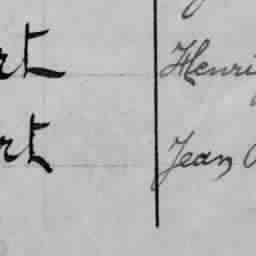 rt Henri
rt Jean